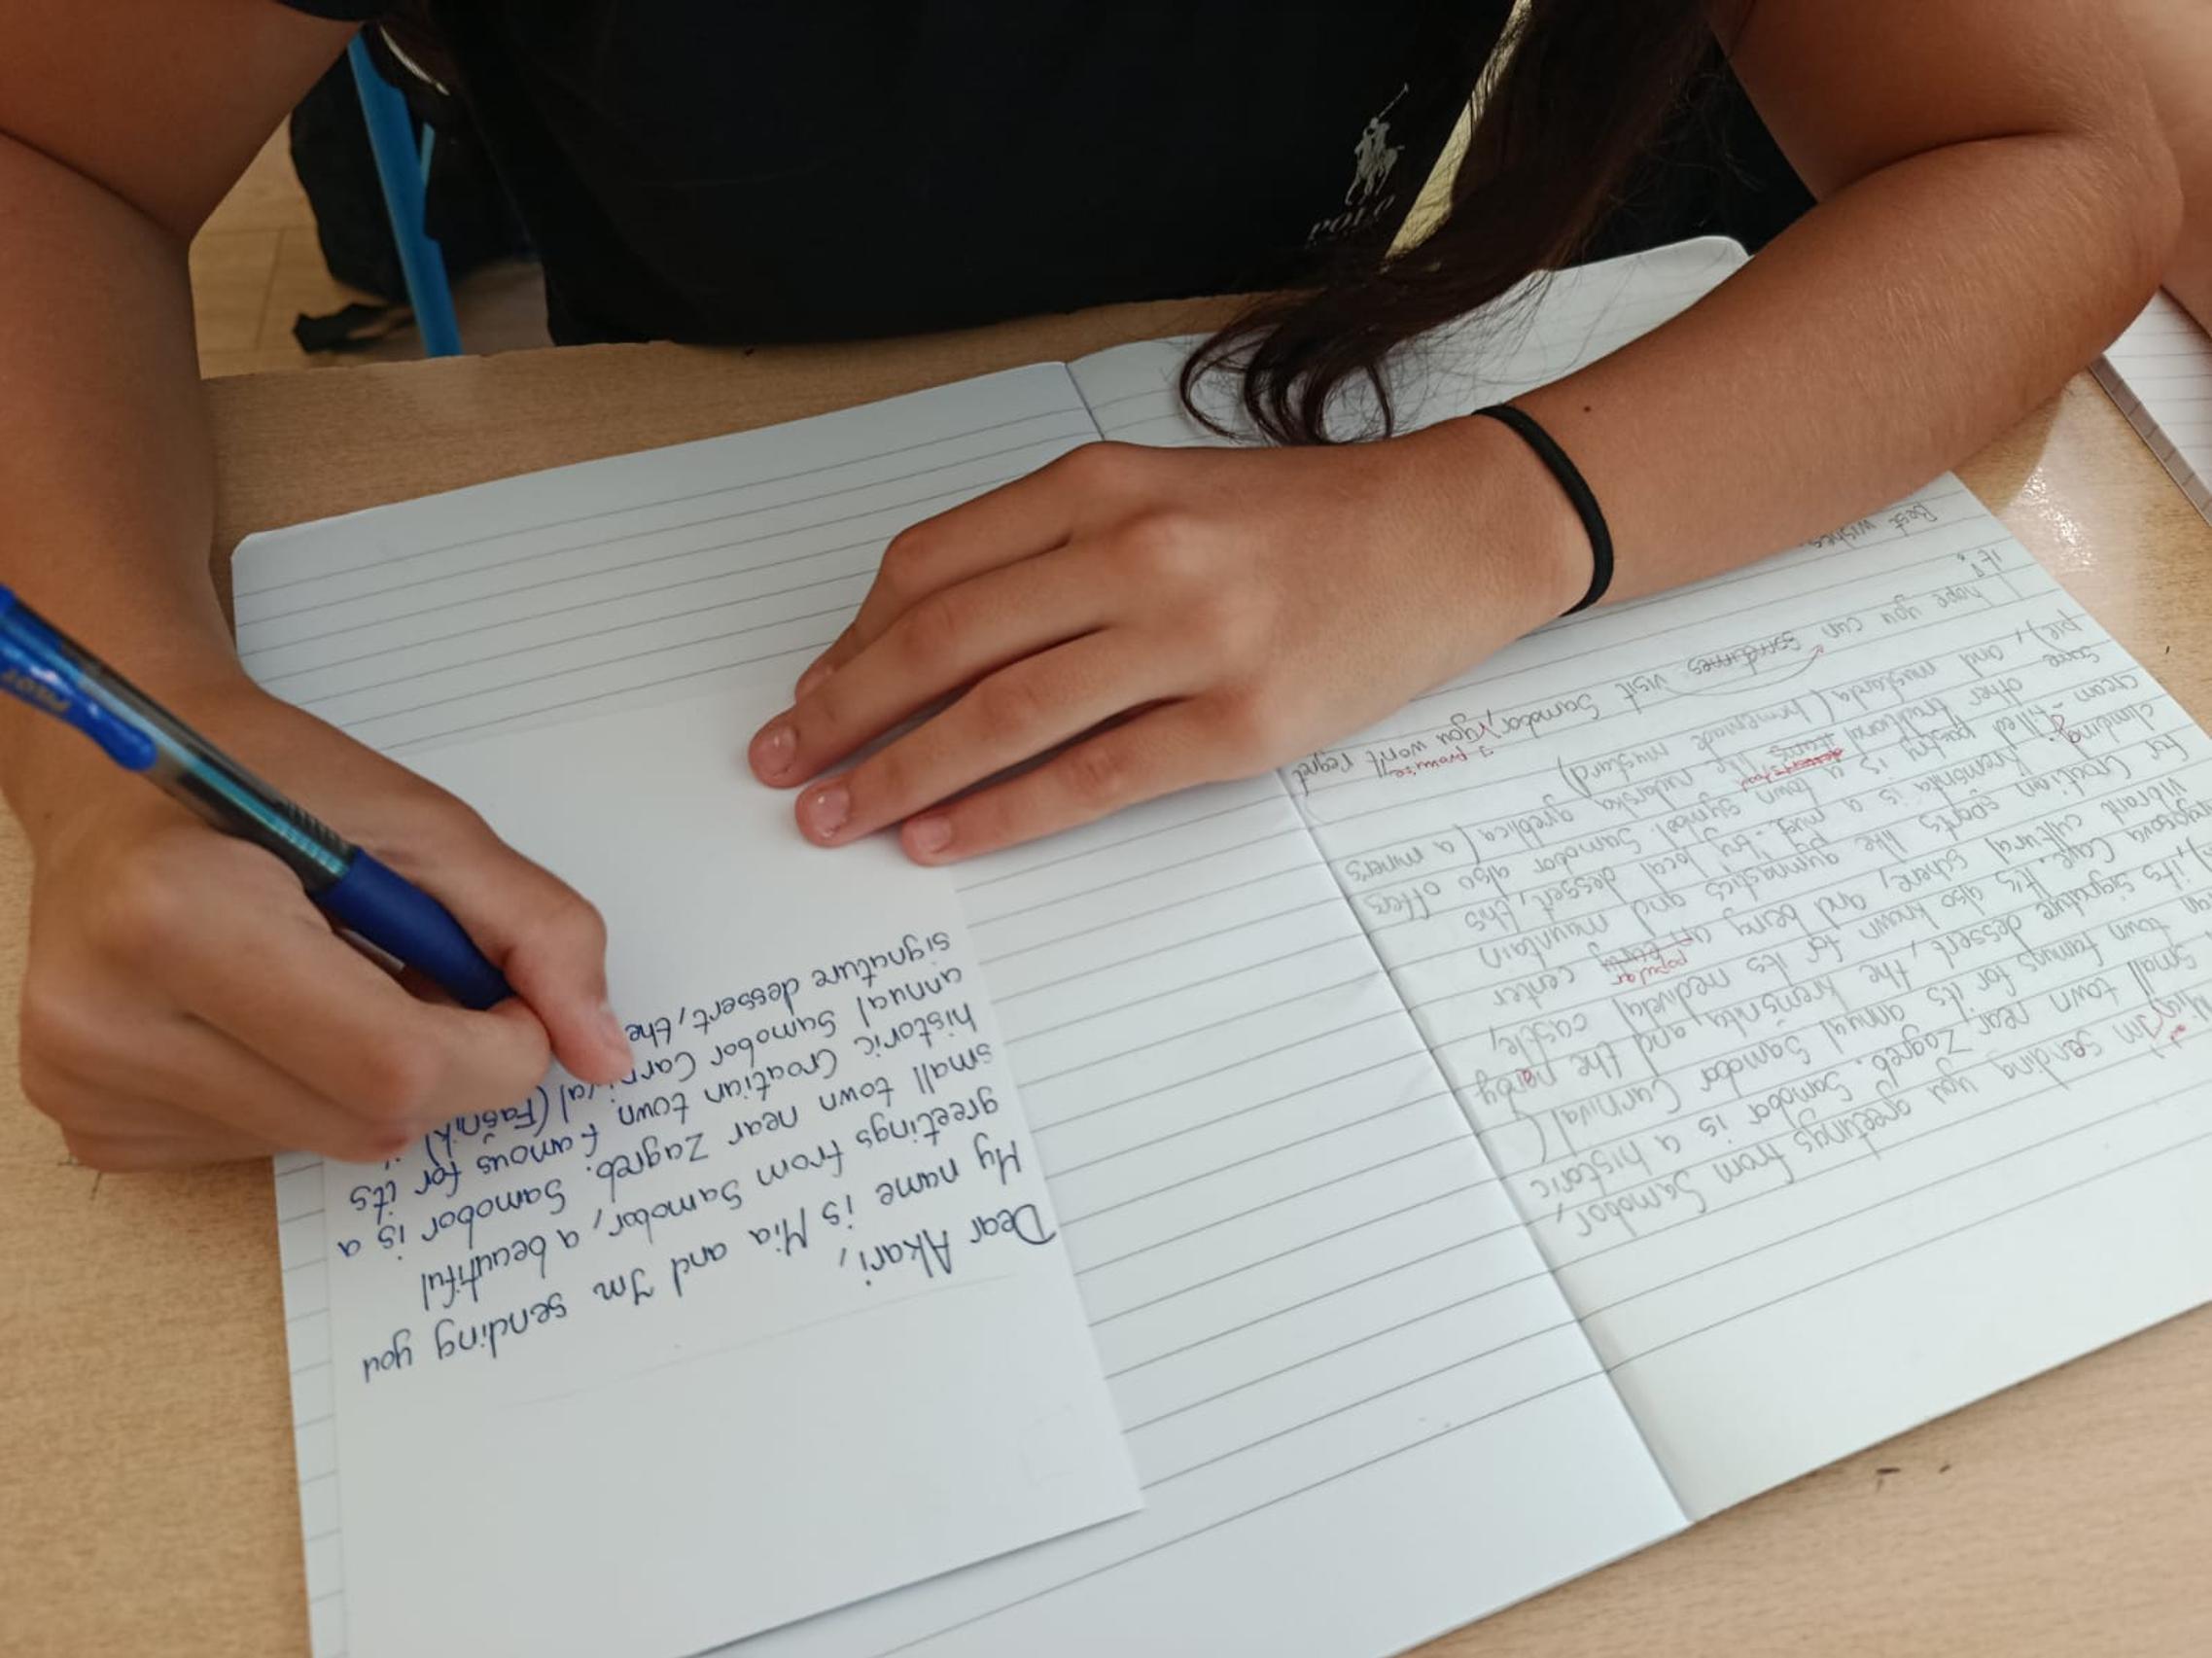 Dear Akari,
My name is Mia and I'm sending you
greetings from Samobor, a beautiful
small town near Zagreb. Samobor is a
historic Croatian town famous for its
annual Samobor Carnival (Fašnik)
signature dessert, the
sending you greetings from Samobor,
small town near Zagreb. Samobor is a historic
town famous for its annual Samobor Carnival (
its signature dessert, the kremšnita, and the nearby
Cave. It's also known for its medieval castle,
vibrant cultural scene, and being a popular center
for Croatian sports like gymnastics and mountain
Kremšnita is a local dessert, this
cream-filled pastry is a town symbol. Samobor also offers
some other traditional like rudarska greblica (a miners
pie), and muštarda (homemade mustard)
I hope you can sometimes visit Samobor, I promise you won't regret
it!
Best wishes
POLO
PILOT